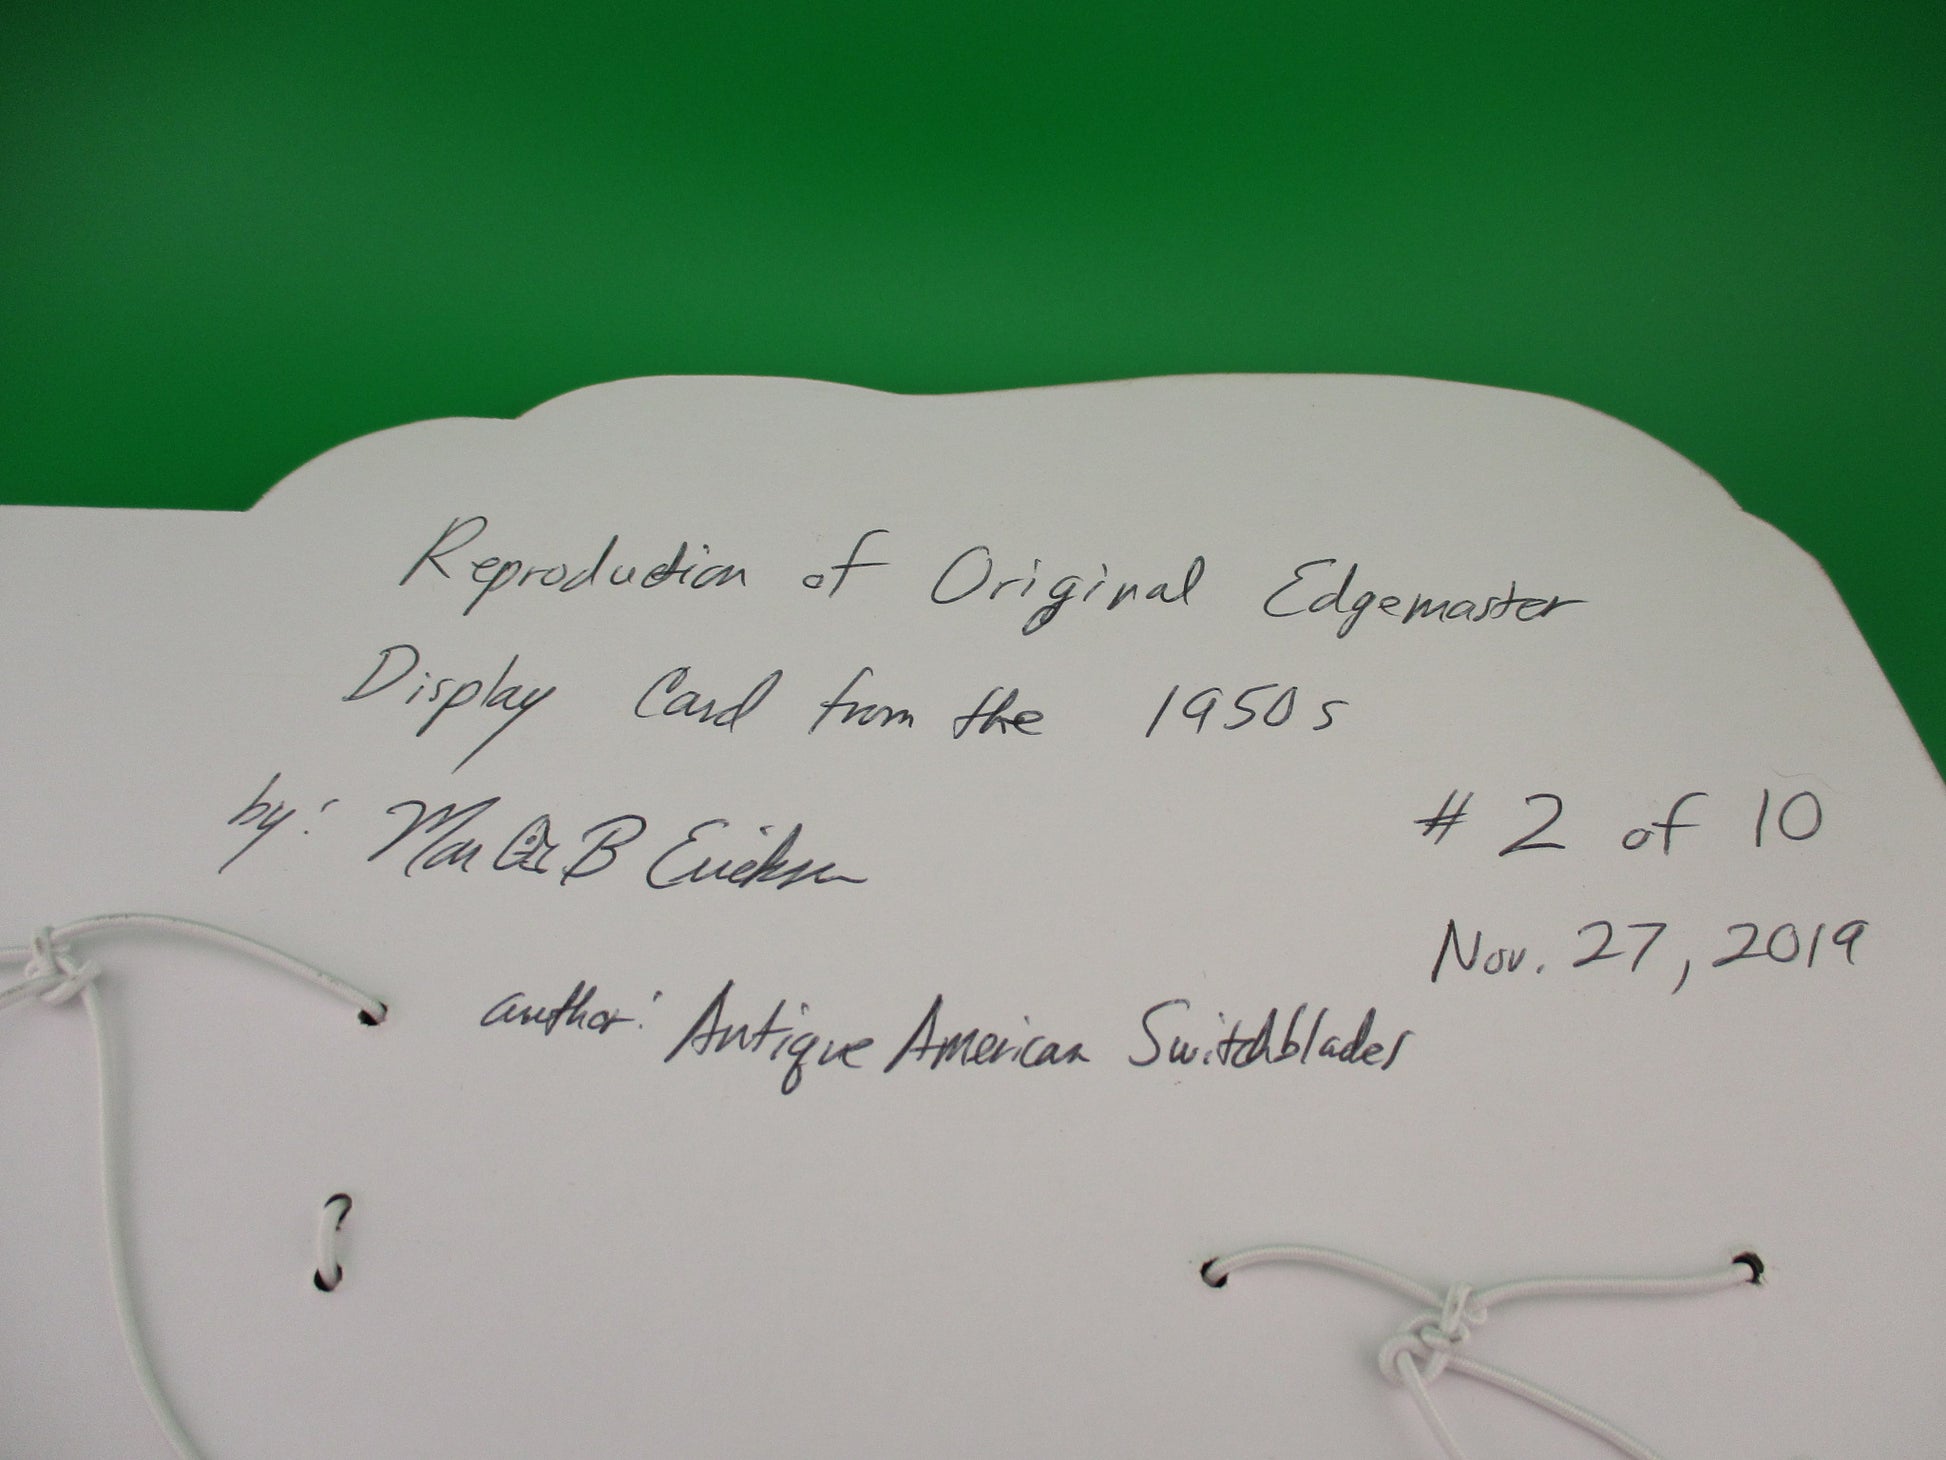 Reproduction of Original Edgemaster
Display Card from the 1950s
by: Mark B Erickson
# 2 of 10
Nov. 27, 2019
author: Antique American Switchblades